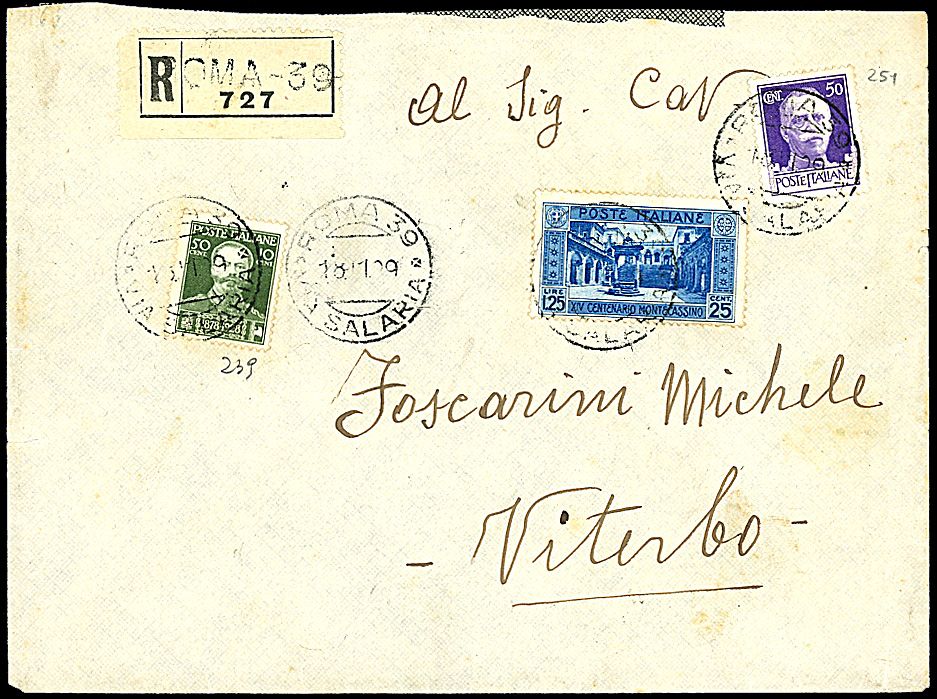 R ROMA-39
727
Al Sig. Cav
251
CENT. 50
POSTE ITALIANE
ROMA 39
VIA SALARIA
POSTE ITALIANE
50 CENT. 10
239
ROMA 39
VIA SALARIA
POSTE ITALIANE
LIRE 1,25 CENT. 25
XIV CENTENARIO MONTECASSINO
Foscarini Michele
- Viterbo -